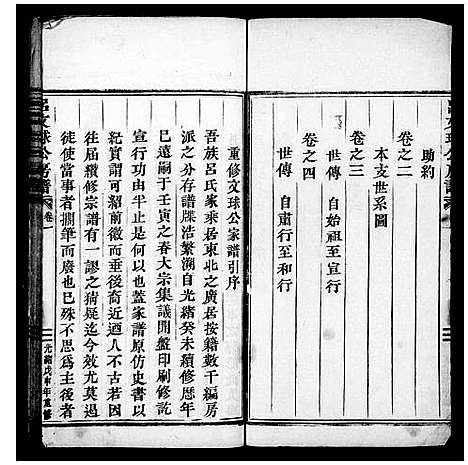 助約
卷之二
本支世系圖
卷之三
世傳 自始祖至宣行
卷之四
世傳 自肅行至和行
重修文球公家譜引序
吾族呂氏家乘居東北之廣居按籍數千編房
派之分存譜牒浩繁溯自光緒癸未續修歷年
已遠嗣于壬寅之春大宗集議開盤印刷修訖
宣行功由半止是何以也蓋家譜原仿史書以
紀實谓前紹前徽而垂後裔近遒人不古若因
往屆續修宗譜有一謬之猜疑迄今效尤莫過
徒使當事者擱筆而廢也已殊不思爲主後者
呂文球公房譜 卷一
光緒戊申年重修